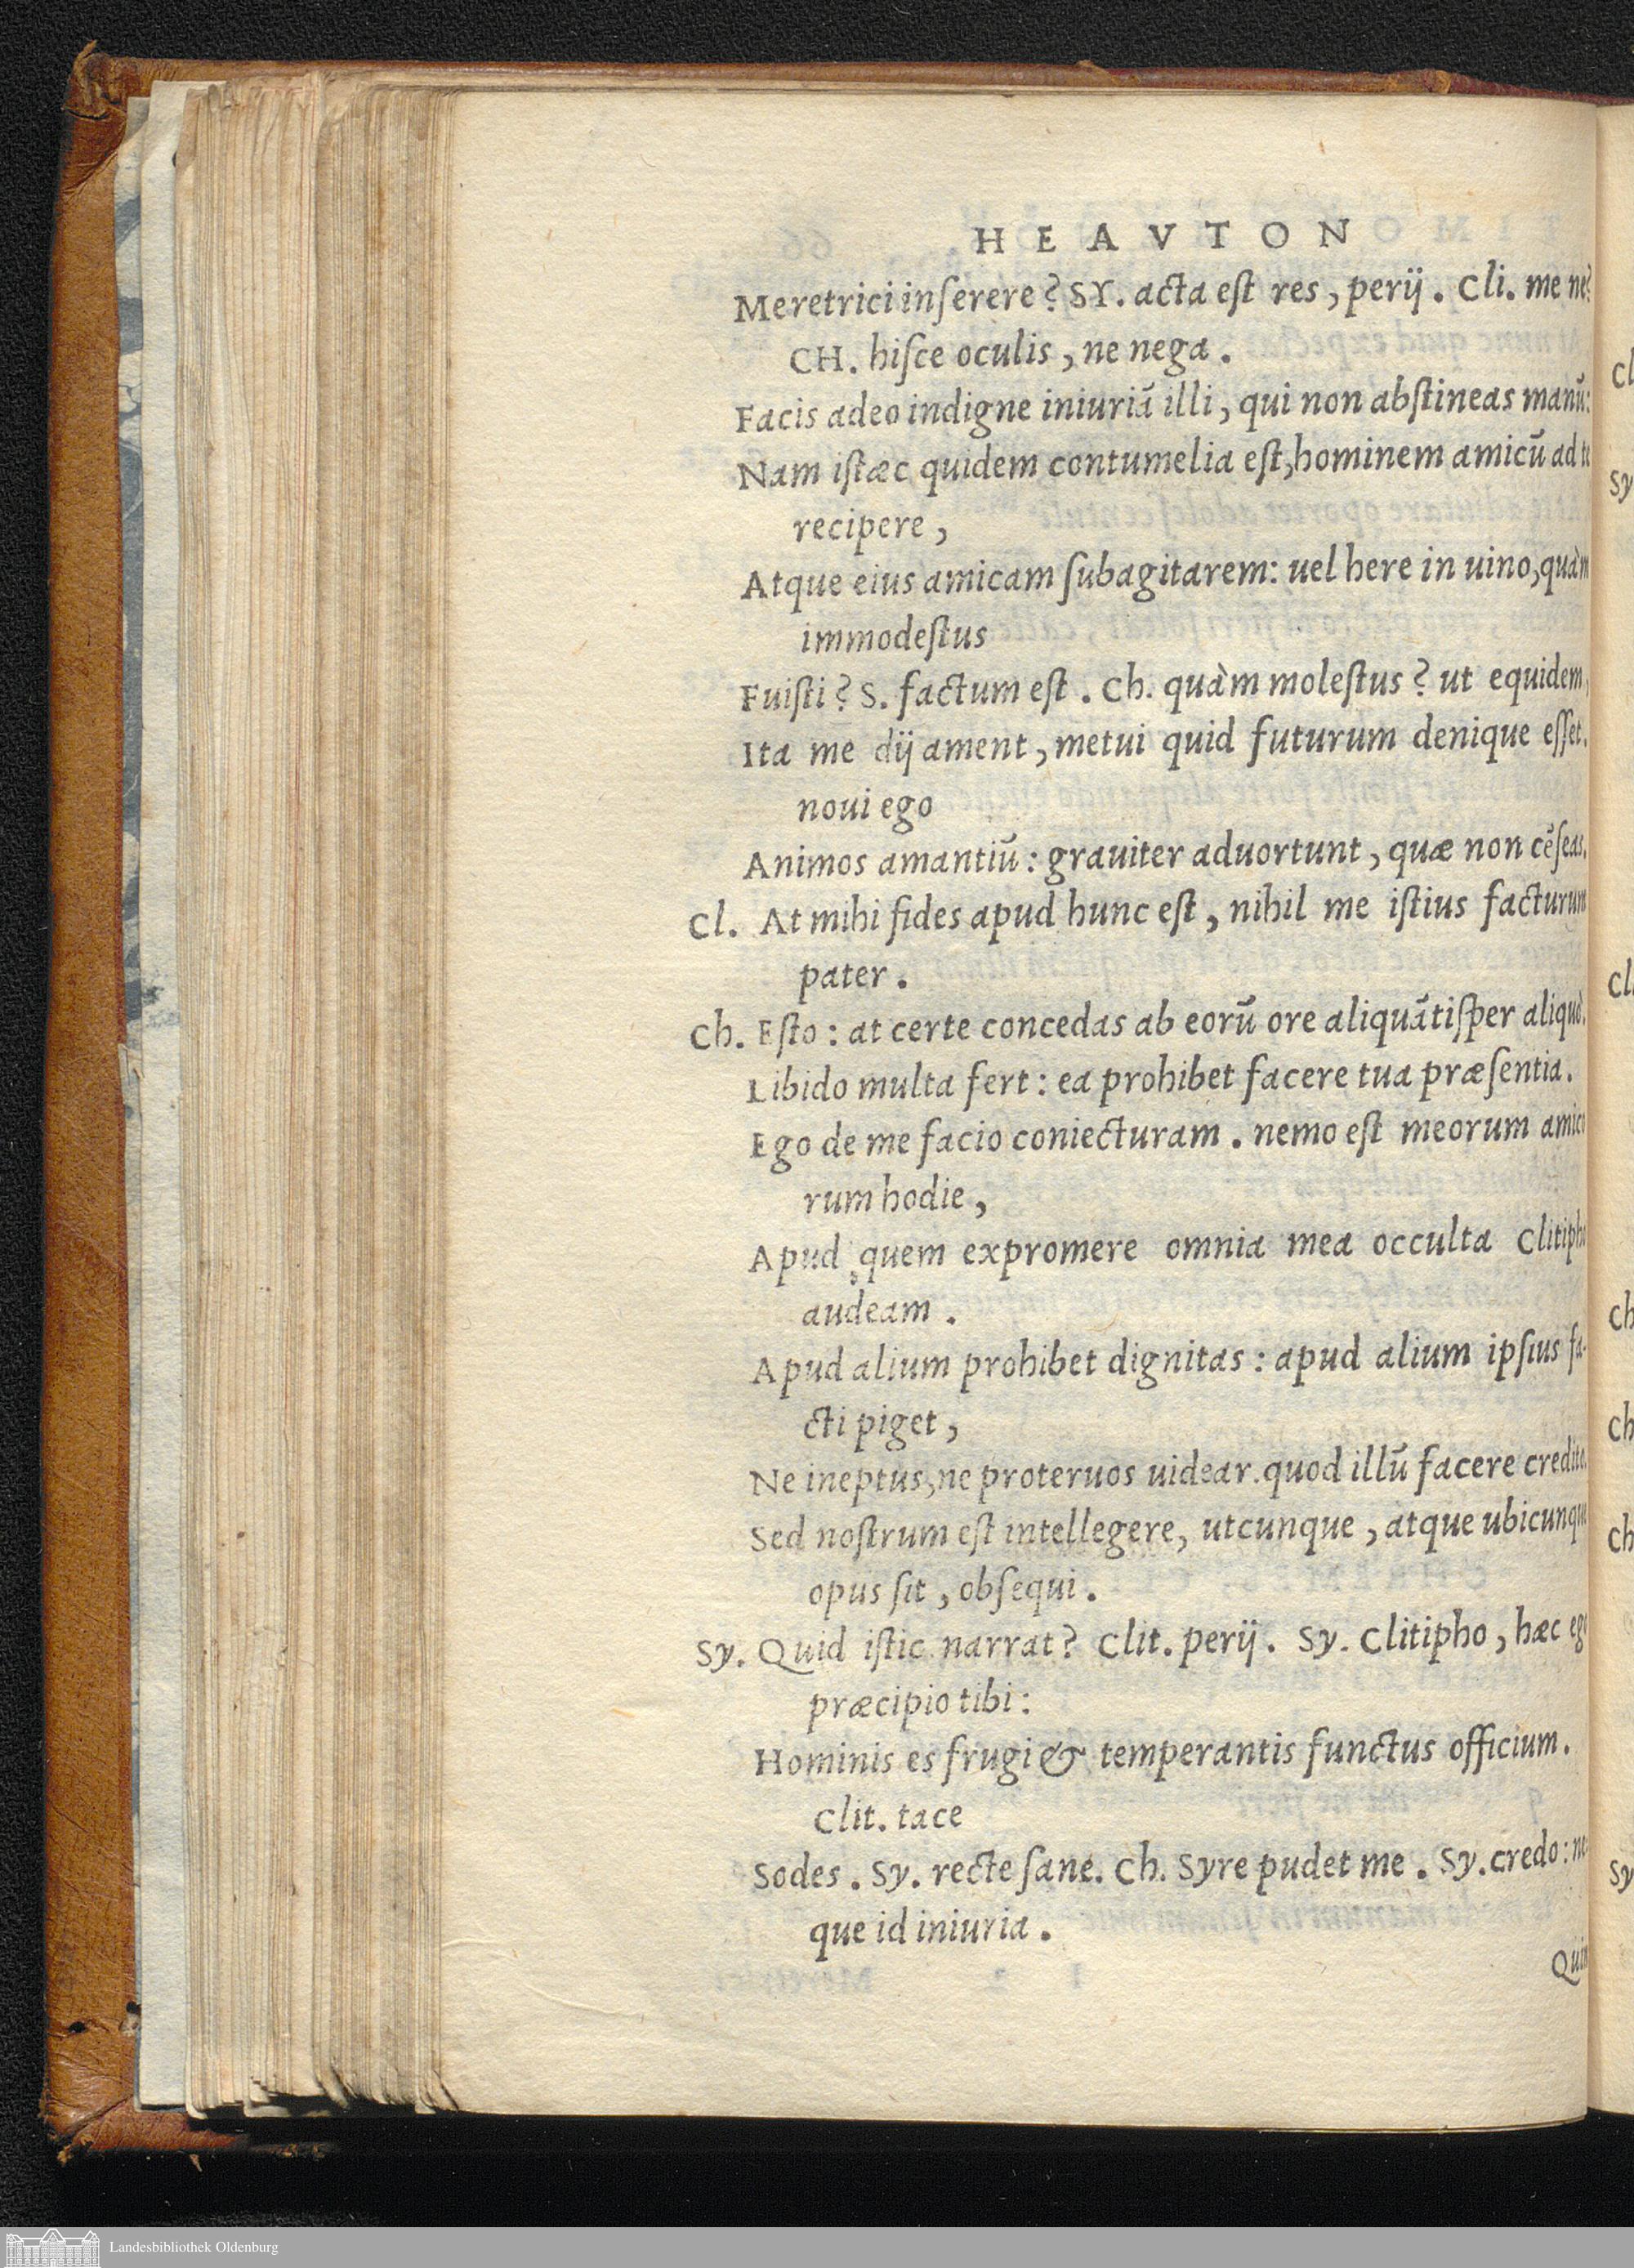 HEAVTON
Meretrici inſerere? SY. acta eſt res, perij. Cli. me ne?
CH. hiſce oculis, ne nega.
Facis adeo indigne iniuriā illi, qui non abſtineas manū:
Nam iſtæc quidem contumelia eſt, hominem amicū ad te
recipere,
Atque eius amicam ſubagitarem: uel here in uino, quàm
immodeſtus
Fuiſti? S. factum eſt. Ch. quàm moleſtus? ut equidem,
Ita me dij ament, metui quid futurum denique eſſet.
noui ego
Animos amantiū: grauiter aduortunt, quæ non cēſeas.
Cl. At mihi fides apud hunc eſt, nihil me iſtius facturum
pater.
Ch. Eſto: at certe concedas ab eorū ore aliquātiſper aliquò.
Libido multa fert: ea prohibet facere tua præſentia.
Ego de me facio coniecturam. nemo eſt meorum amico
rum hodie,
Apud quem expromere omnia mea occulta Clitipho
audeam.
Apud alium prohibet dignitas: apud alium ipſius fa-
cti piget,
Ne ineptus, ne proteruos uidear. quod illū facere credito.
Sed noſtrum eſt intellegere, utcunque, atque ubicunque
opus ſit, obſequi.
Sy. Quid iſtic narrat? Clit. perij. Sy. Clitipho, hæc ego
præcipio tibi:
Hominis es frugi & temperantis functus officium.
Clit. tace
Sodes. Sy. recte ſane. Ch. Syre pudet me. Sy. credo: ne-
que id iniuria.
Quin
Cl
Sy
Cl
Ch
Ch
Ch
Sy
Landesbibliothek Oldenburg